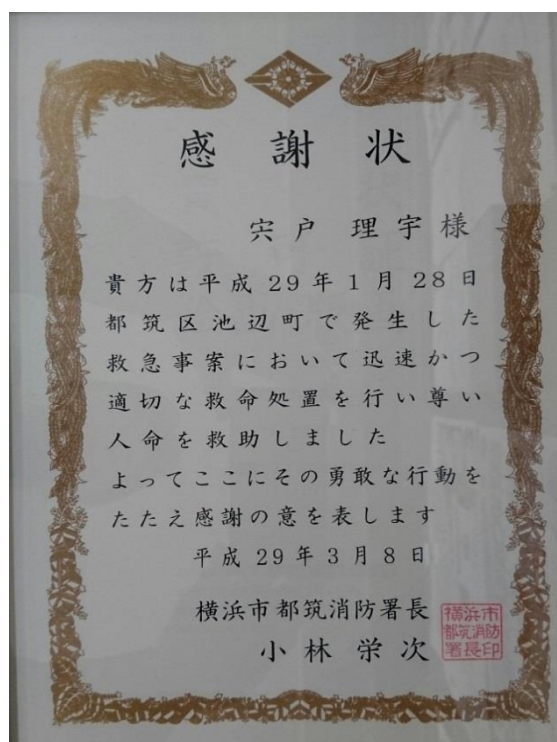 感謝状
宍戸 理宇様
貴方は平成29年1月28日
都筑区池辺町で発生した
救急事案において迅速かつ
適切な救命処置を行い尊い
人命を救助しました
よってここにその勇敢な行動を
たたえ感謝の意を表します
平成29年3月8日
横浜市都筑消防署長
小林栄次
横浜市
都筑消防
署長印